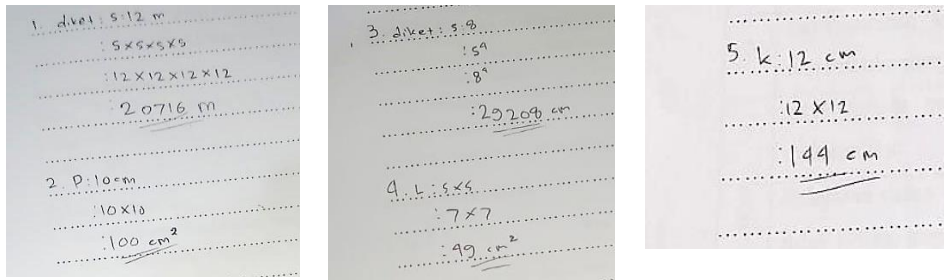 1. diket : s : 12 m
: s x s x s x s
: 12 x 12 x 12 x 12
: 20716 m
2. P : 10 cm
: 10 x 10
: 100 cm²
3. diket : s : 8
: s⁴
: 8⁴
: 29208 cm
4. L : s x s
: 7 x 7
: 49 cm²
5. k : 12 cm
: 12 x 12
: 144 cm